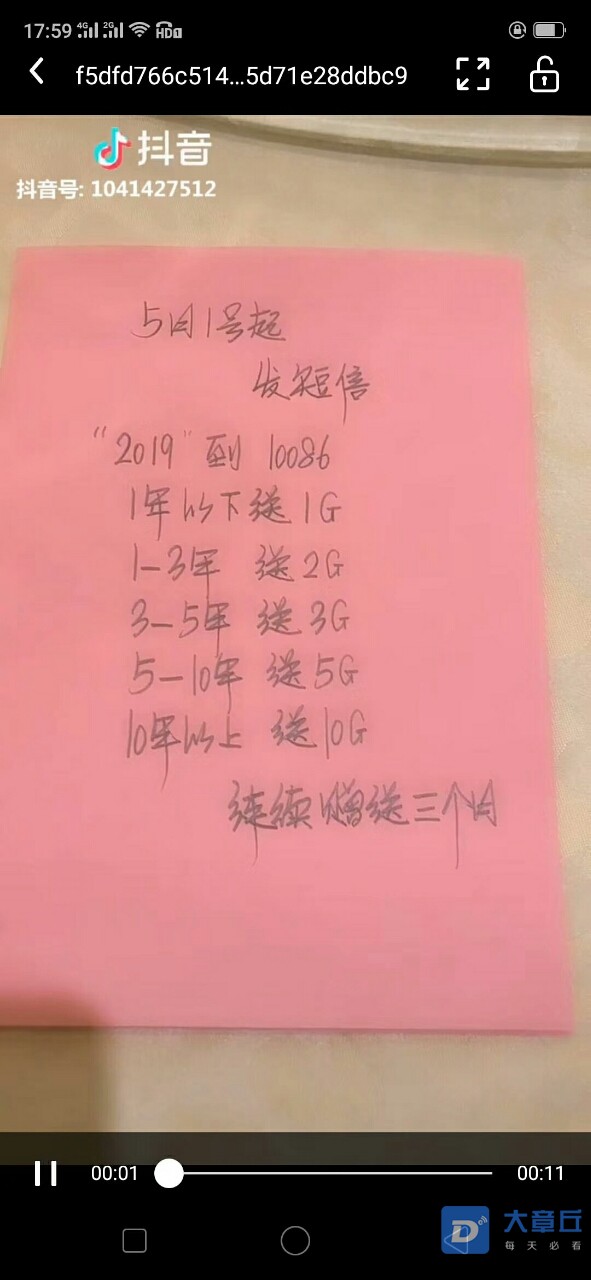 17:59 4G 2G HD1
f5dfd766c514...5d71e28ddbc9
抖音
抖音号: 1041427512
5月1号起
发短信
“2019”到 10086
1年以下送1G
1-3年 送2G
3-5年 送3G
5-10年 送5G
10年以上 送10G
连续赠送三个月
00:01 00:11
大章丘
每天必看